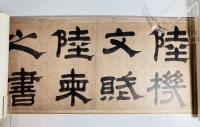 陸機
文賦
陸柬
之書